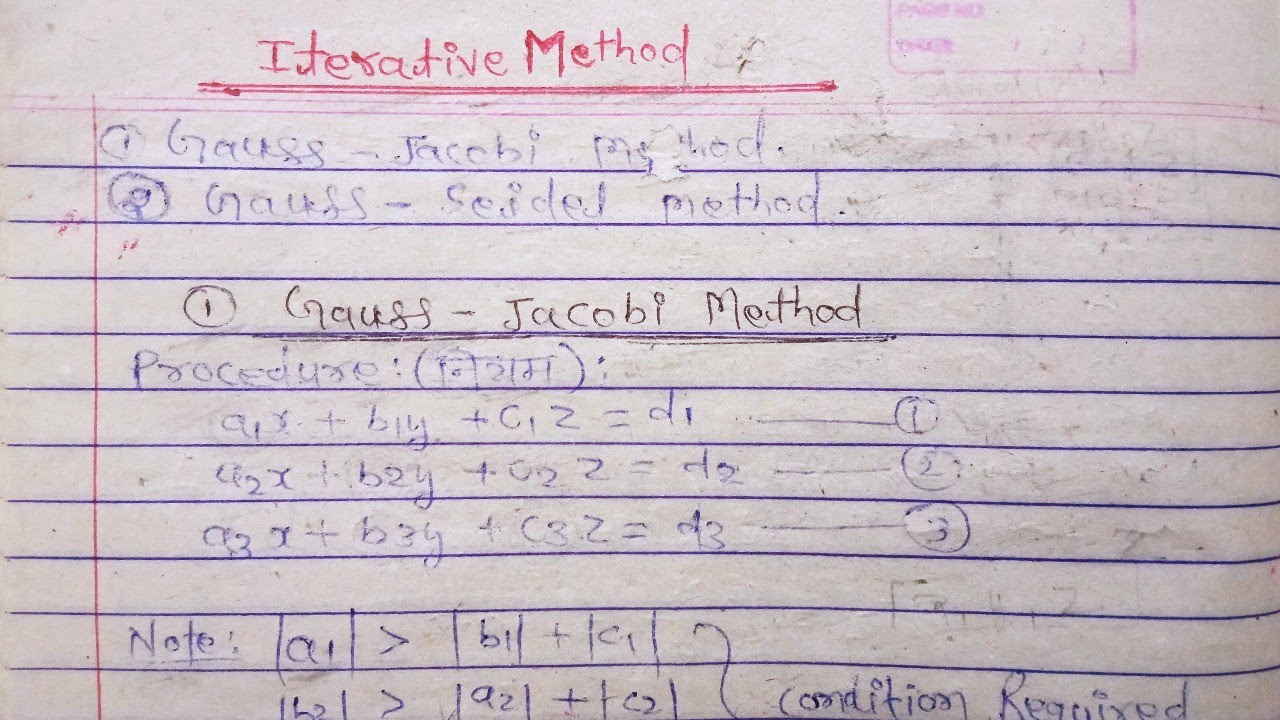 PAGE NO
Iterative Method
① Gauss - Jacobi method.
② Gauss - Seidel method.
① Gauss - Jacobi Method
Procedure: (नियम):
a₁x + b₁y + c₁z = d₁ ——— ①
a₂x + b₂y + c₂z = d₂ ——— ②
a₃x + b₃y + c₃z = d₃ ——— ③
Note: |a₁| > |b₁| + |c₁|
|b₂| > |a₂| + |c₂| } Condition Required